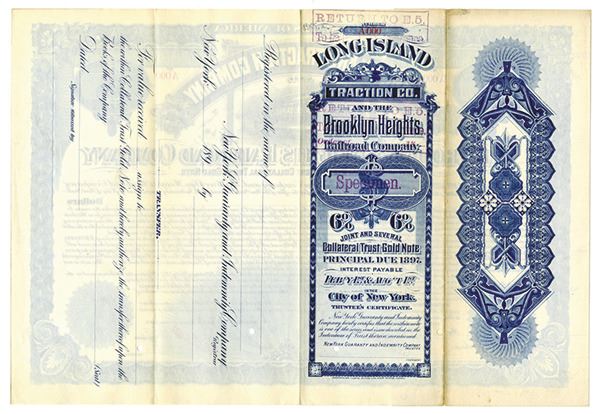 RETURN TO E.5.
A000
LONG ISLAND
TRACTION CO.
AND THE
Brooklyn Heights
Railroad Company.
Specimen.
6% 6%
JOINT AND SEVERAL
Collateral Trust Gold Note,
PRINCIPAL DUE 1897.
INTEREST PAYABLE
FEB'Y 1ST & AUG'T 1ST
IN THE
City of New York.
TRUSTEE'S CERTIFICATE.
New York Guaranty and Indemnity
Company hereby certifies that the within note
is one of the series and issue described in the
Indenture of Trust therein mentioned.
NEW YORK GUARANTY AND INDEMNITY COMPANY
Registered in the name of
New York, 189
New York Guaranty and Indemnity Company,
by
Registrar
TRANSFER.
For value received
assign to
the within Collateral Trust Gold Note and hereby authorize the transfer thereof upon the
Books of the Company.
Dated
[Seal]
Signature witnessed by